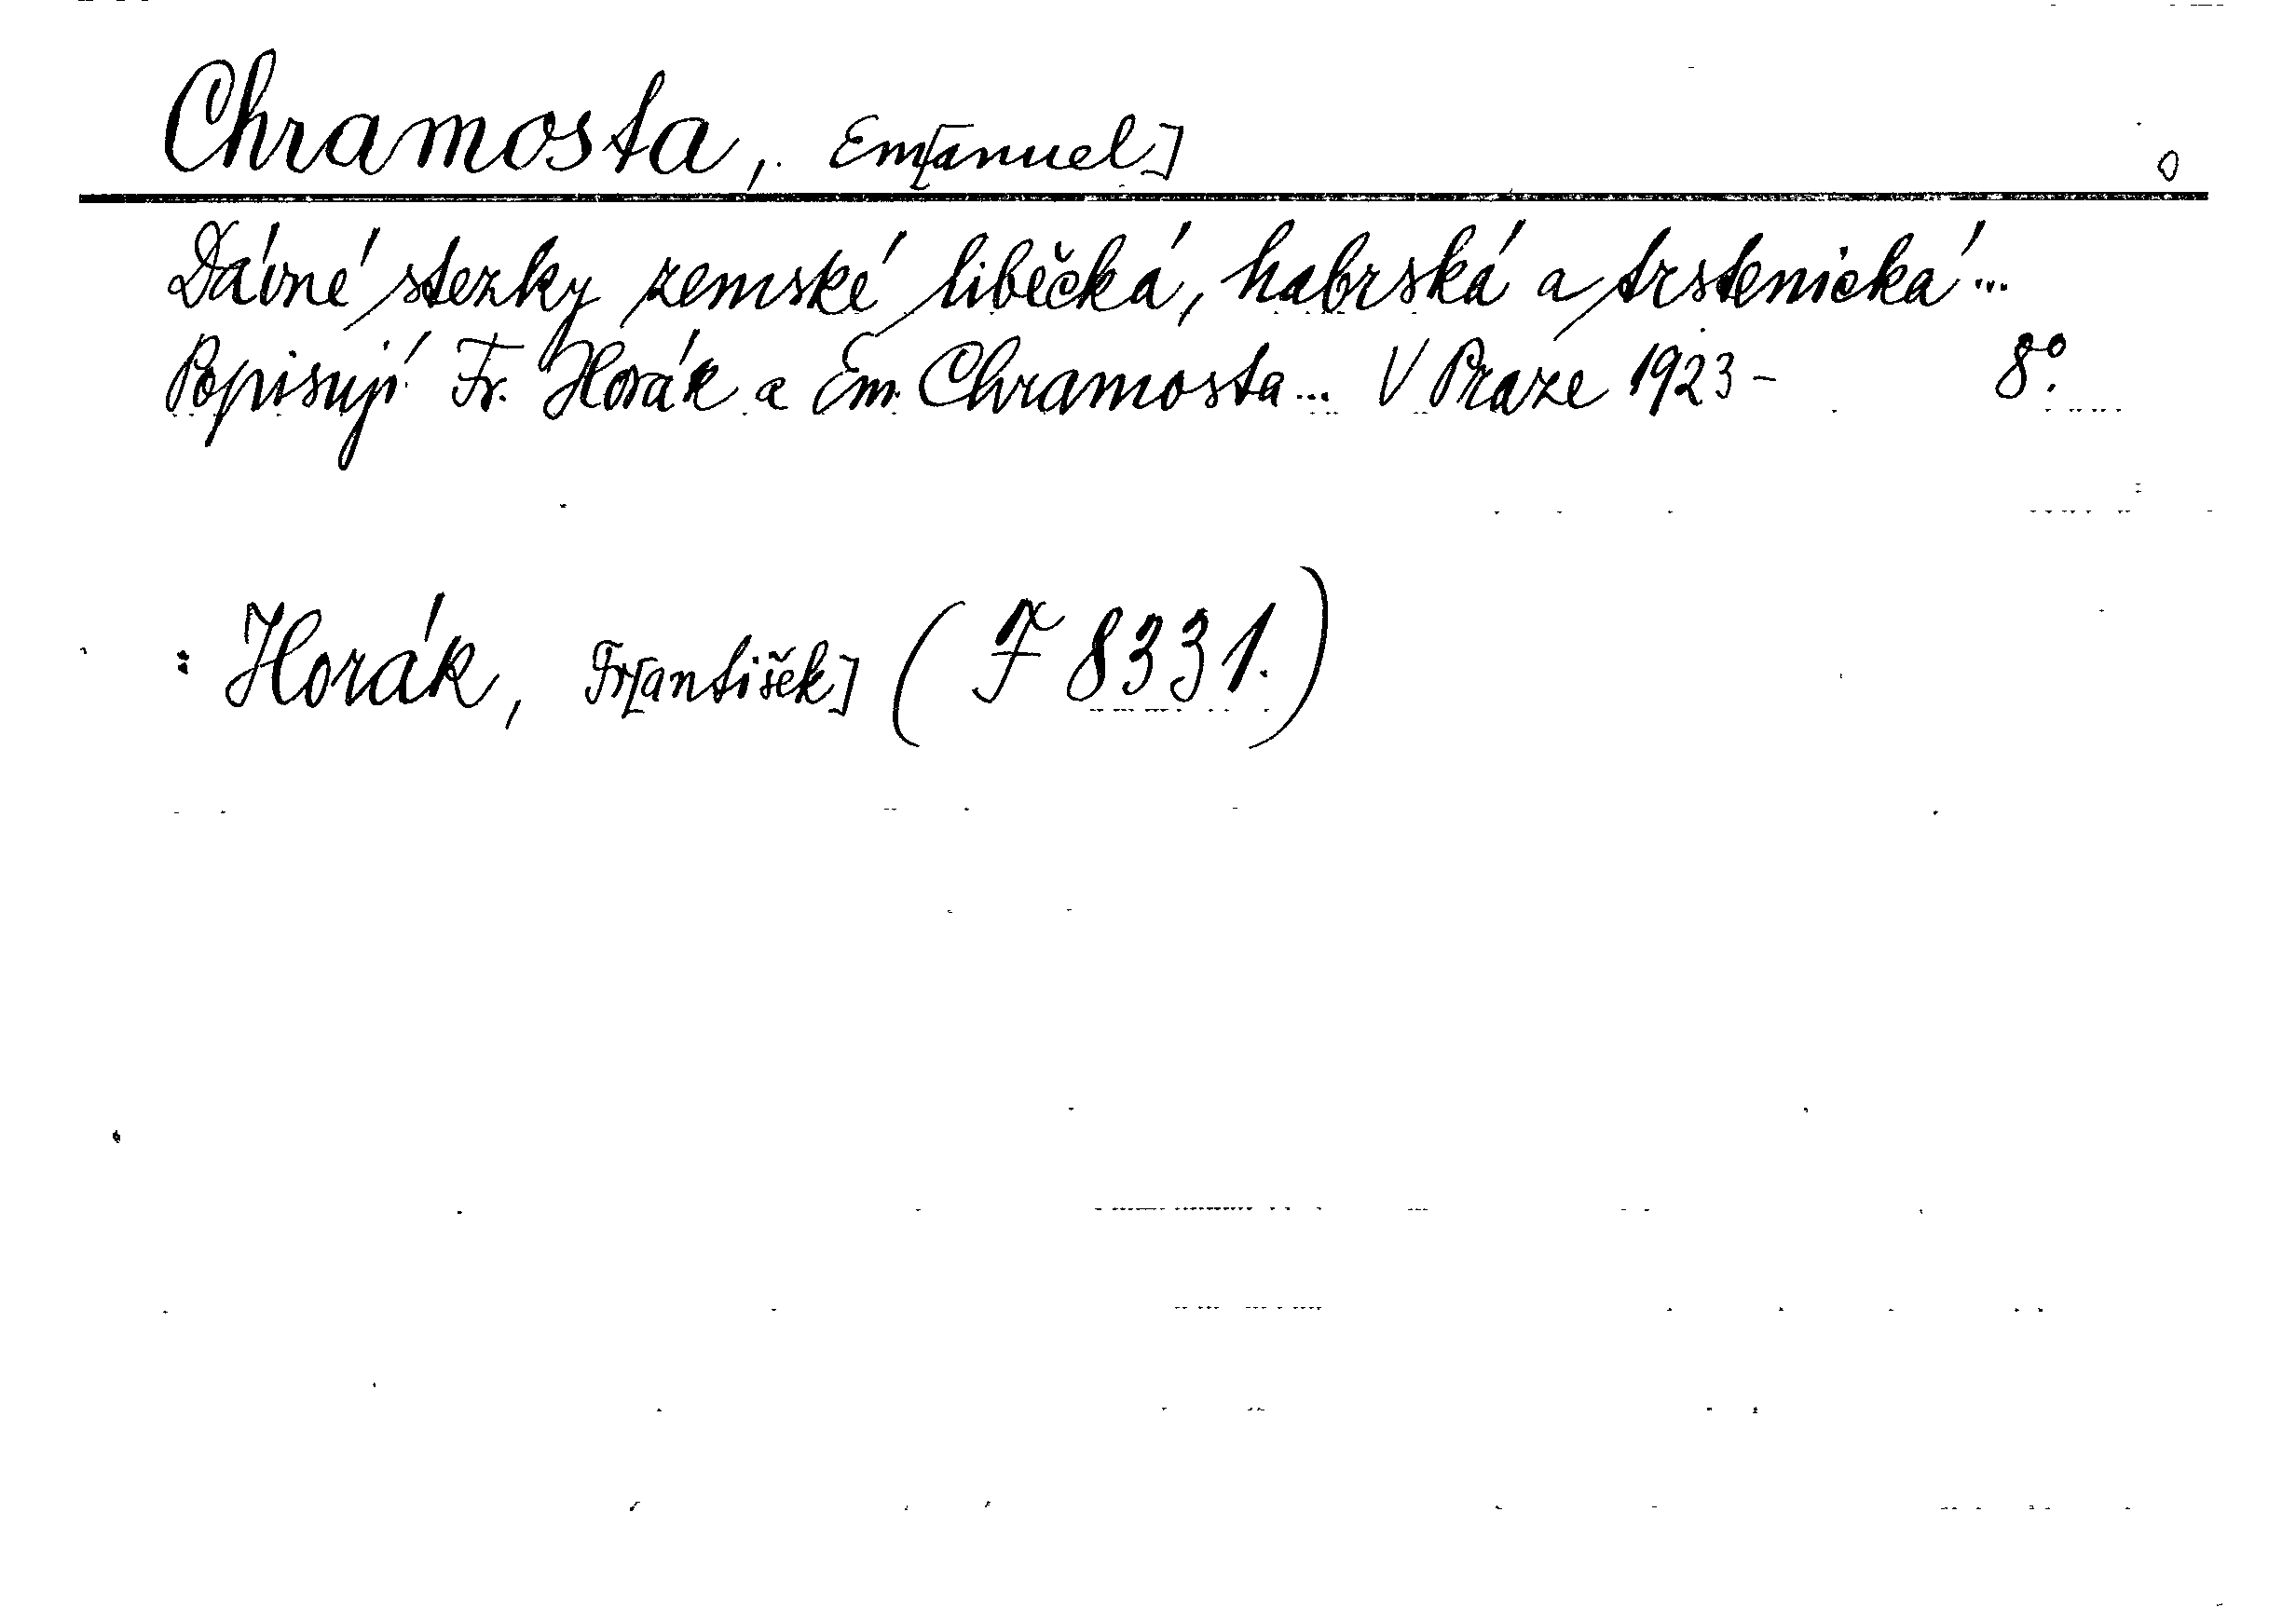 Chramosta, Em[anuel] 0
Dávné stezky zemské liběcká, habrská a trstenická...
Popisují Fr. Horák a Em. Chramosta... V Praze 1923- 8°.
: Horák, Fr[antišek] (F 8331.)